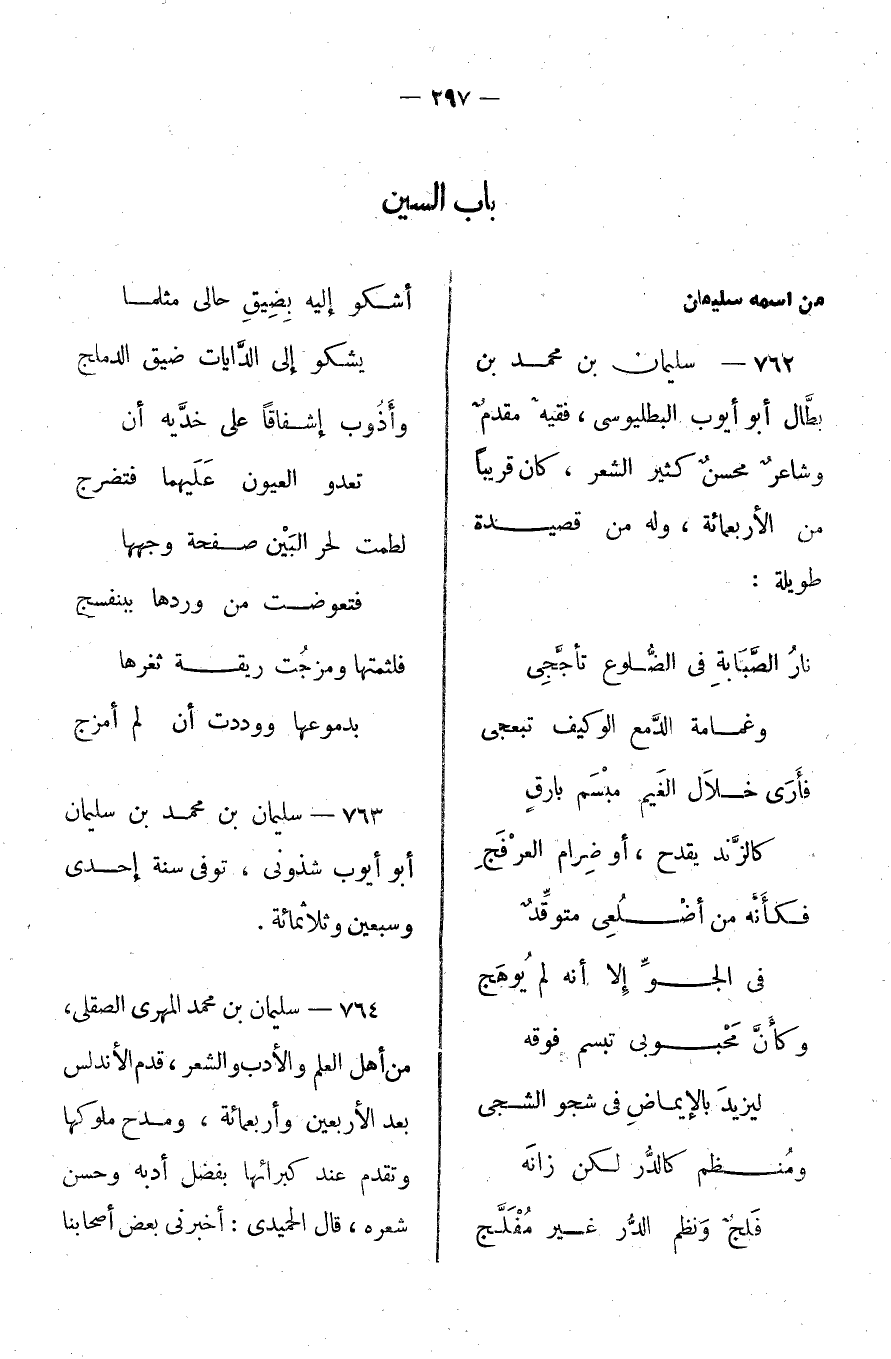 — ٢٩٧ —
باب السين
من اسمه سليمان
٧٦٢ — سليمان بن محمد بن
بطَّال أبو أيوب البطليوسى ، فقيهٌ مقدمٌ
وشاعرٌ محسنٌ كثير الشعر ، كان قريباً
من الأربعمائة ، وله من قصيدة
طويلة :
نارُ الصَّبَابةِ فى الضُّلوع تأجَّجِى
وغمامة الدَّمع الوكيف تبعجى
فأَرَى خلاَل الغَيم مبْسَم بارقٍ
كالزَّند يقدح ، أو ضِرام العرْفَجِ
فكأَنَّه من أضْلُعِى متوقِّدٌ
فى الجوِّ إلا أنه لم يُوهَج
وكأنَّ مَحْبوبى تبسم فوقه
ليزيدَ بالإيماضِ فى شجو الشجى
ومُنظم كالدُّر لكن زانَه
فَلجٌ وَنظم الدُّر غير مُفْلَّج
أشكو إليه بِضِيقِ حالى مثلما
يشكو إلى الدَّايات ضيق الدملج
وأَذُوب إشفاقاً على خدَّيه أن
تعدو العيون عَلَيهما فتضرج
لطمت لحر البَيْن صفحة وجهها
فتعوضت من وردها ببنفسج
فلثمتها ومزجُت ريقة ثغرها
بدموعها ووددت أن لم أمزج
٧٦٣ — سليمان بن محمد بن سليمان
أبو أيوب شذونى ، توفى سنة إحدى
وسبعين وثلاثمائة .
٧٦٤ — سليمان بن محمد المهرى الصقلى،
من أهل العلم والأدب والشعر ، قدم الأندلس
بعد الأربعين وأربعمائة ، ومدح ملوكها
وتقدم عند كبرائها بفضل أدبه وحسن
شعره ، قال الحميدى : أخبرنى بعض أصحابنا